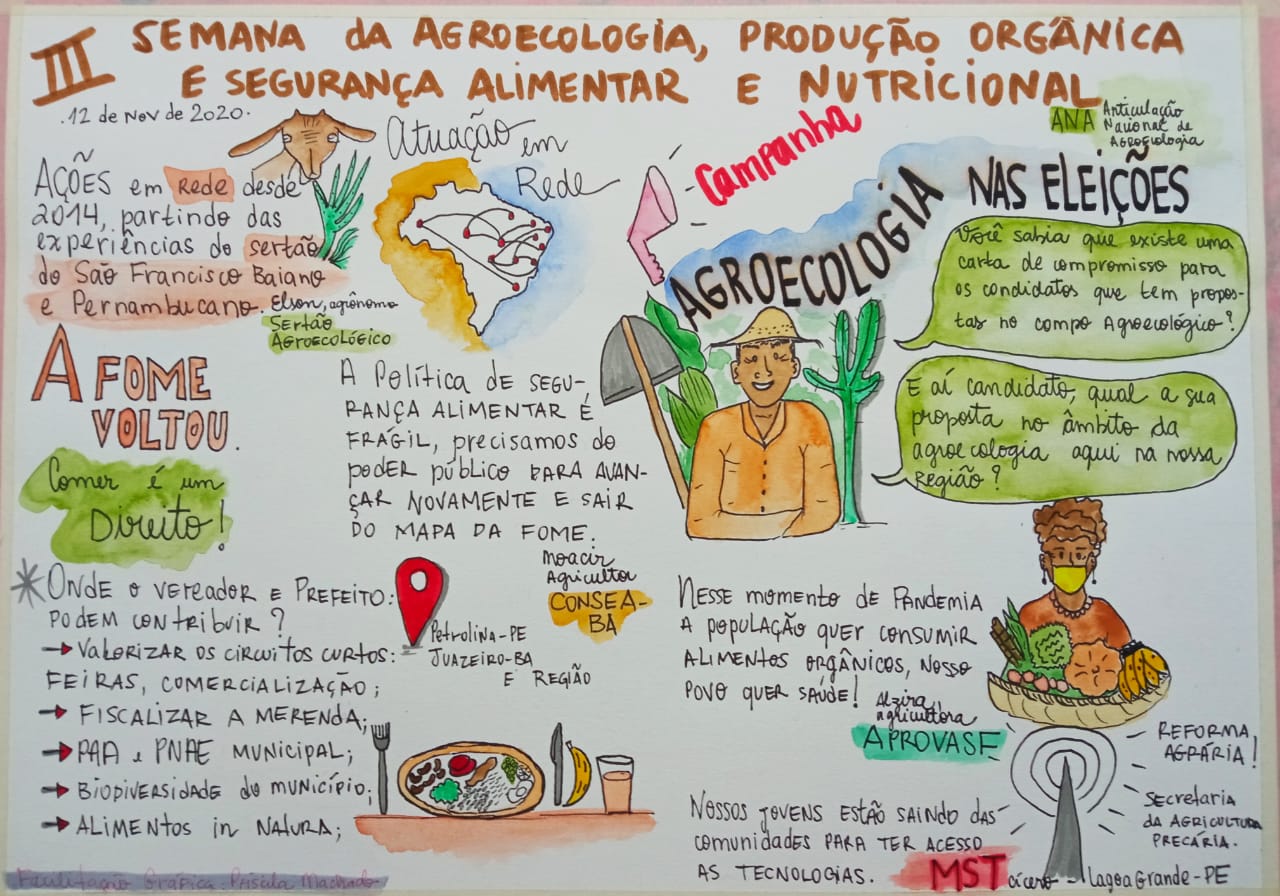 III SEMANA da AGROECOLOGIA, PRODUÇÃO ORGÂNICA
E SEGURANÇA ALIMENTAR E NUTRICIONAL
.12 de Nov de 2020.
AÇÕES em REDE desde
2014, partindo das
experiências do sertão
do São Francisco Baiano
e Pernambucano.
Elson, agrônomo
Sertão
AGROECOLÓGICO
Atuação em
Rede
Campanha
AGROECOLOGIA
NAS ELEIÇÕES
ANA Articulação
Nacional de
AGROECOLOGIA
Você sabia que existe uma
carta de compromisso para
os candidatos que tem propos-
tas no campo Agroecológico?
E aí candidato, qual a sua
proposta no âmbito da
agroecologia aqui na nossa
Região?
A FOME
VOLTOU.
Comer é um
Direito!
A POLÍTICA DE SEGU-
RANÇA ALIMENTAR É
FRÁGIL, precisamos do
poder público PARA AVAN-
ÇAR NOVAMENTE E SAIR
DO MAPA DA FOME.
Moacir
Agricultor
CONSEA-
BA
*ONDE O VEREADOR E PREFEITO:
PODEM CONTRIBUIR?
→ VALORIZAR OS CIRCUITOS CURTOS:
FEIRAS, COMERCIALIZAÇÃO;
→ FISCALIZAR A MERENDA;
→ PAA e PNAE MUNICIPAL;
→ BIODIVERSIDADE do MUNICÍPIO;
→ ALIMENTOS in NATURA;
Petrolina-PE
JUAZEIRO-BA
E REGIÃO
NESSE momento de PANDEMIA
A POPULAÇÃO QUER CONSUMIR
ALIMENTOS ORGÂNICOS, NOSSO
POVO QUER SAÚDE!
Alzira,
agricultora
APROVASF
NOSSOS JOVENS ESTÃO SAINDO DAS
COMUNIDADES PARA TER ACESSO
AS TECNOLOGIAS.
MST cícero - Lagoa Grande-PE
REFORMA
AGRÁRIA!
Secretaria
DA AGRICULTURA
PRECÁRIA.
Facilitação Gráfica: Priscila Machado